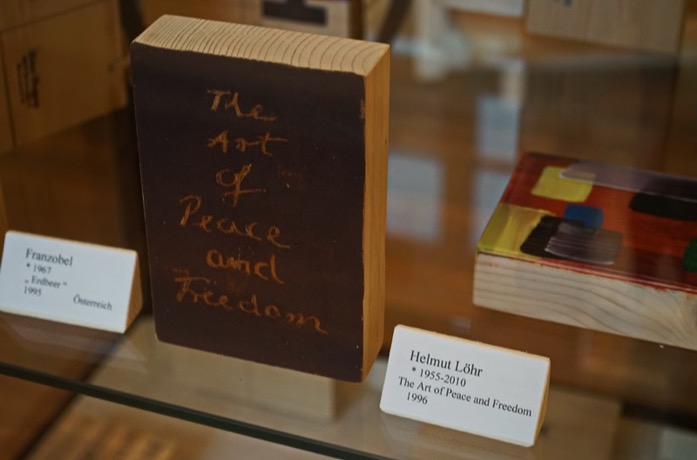 The
Art
of
Peace
and
Freedom
Franzobel
* 1967
„ Erdbeer “
1995
Österreich
Helmut Löhr
* 1955-2010
The Art of Peace and Freedom
1996